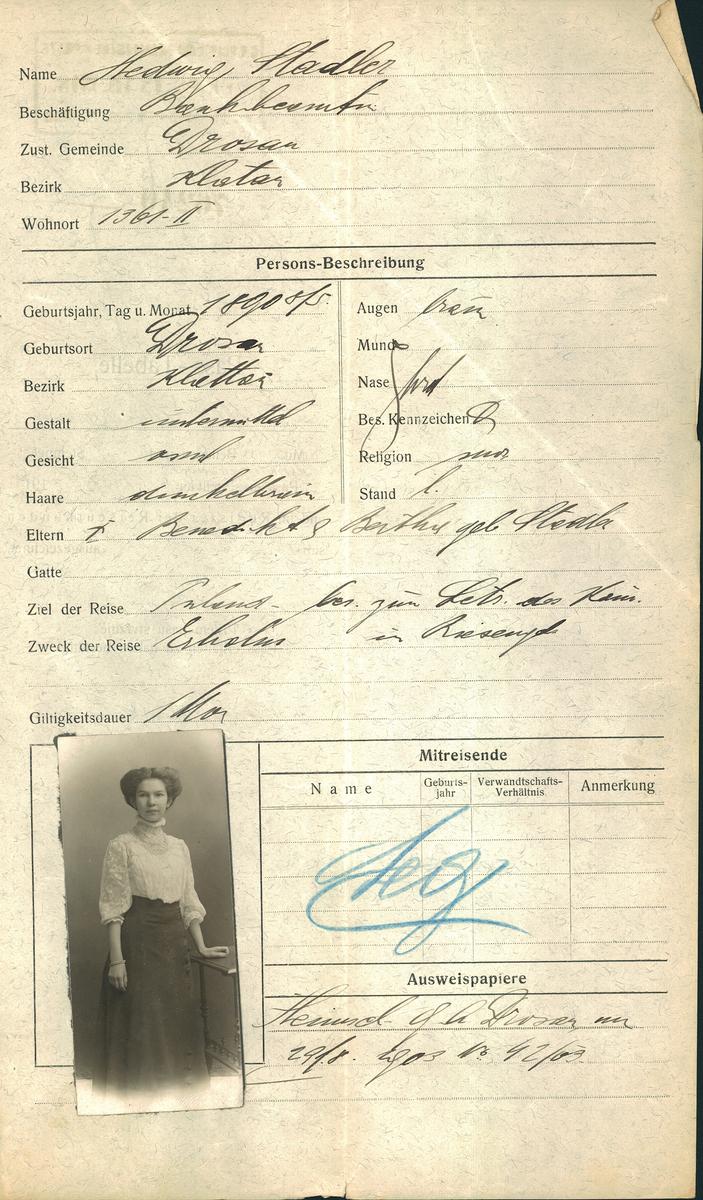 Name Hedwig Stadler
Beschäftigung Bankbeamtin
Zust. Gemeinde Drosau
Bezirk Klatau
Wohnort 1361-II
Persons-Beschreibung
Geburtsjahr, Tag u. Monat 1890 8/5.
Geburtsort Drosau
Bezirk Klattau
Gestalt untermittel
Gesicht oval
Haare dunkelbraun
Augen braun
Mund
Nase
Bes. Kennzeichen
Religion mos
Stand l.
Eltern † Benedikt & Bertha geb Stadler
Gatte
Ziel der Reise Inland - bes. zum
Zweck der Reise Erholung in Riesengb
Giltigkeitsdauer 1 Mon
Mitreisende
Name Geburts-jahr Verwandtschafts-Verhältnis Anmerkung
Ausweispapiere
Heimsch. d G Drosau
29/8. 1903 No 42/03